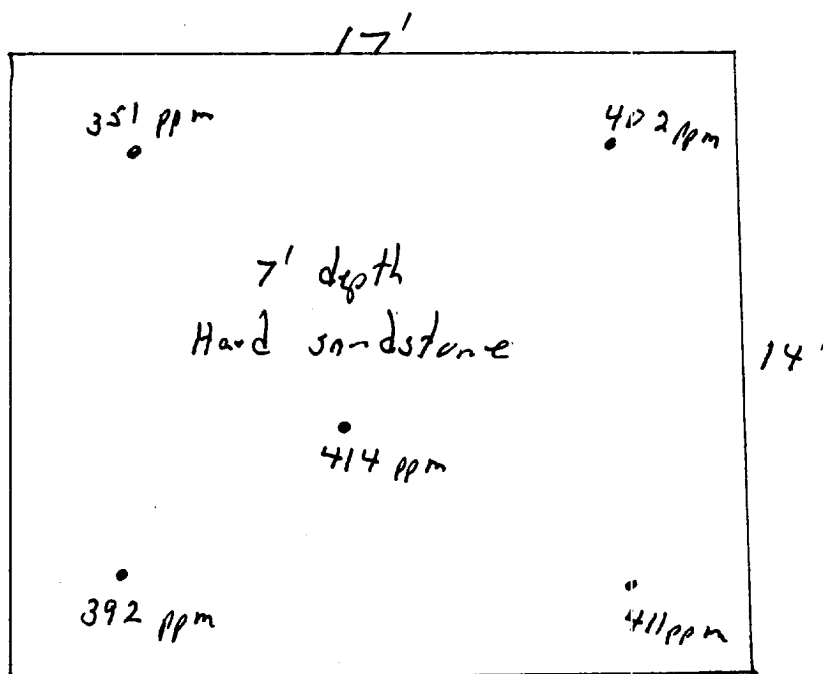 17'
351 ppm
402 ppm
7' depth
Hard sandstone
14'
414 ppm
392 ppm
411 ppm